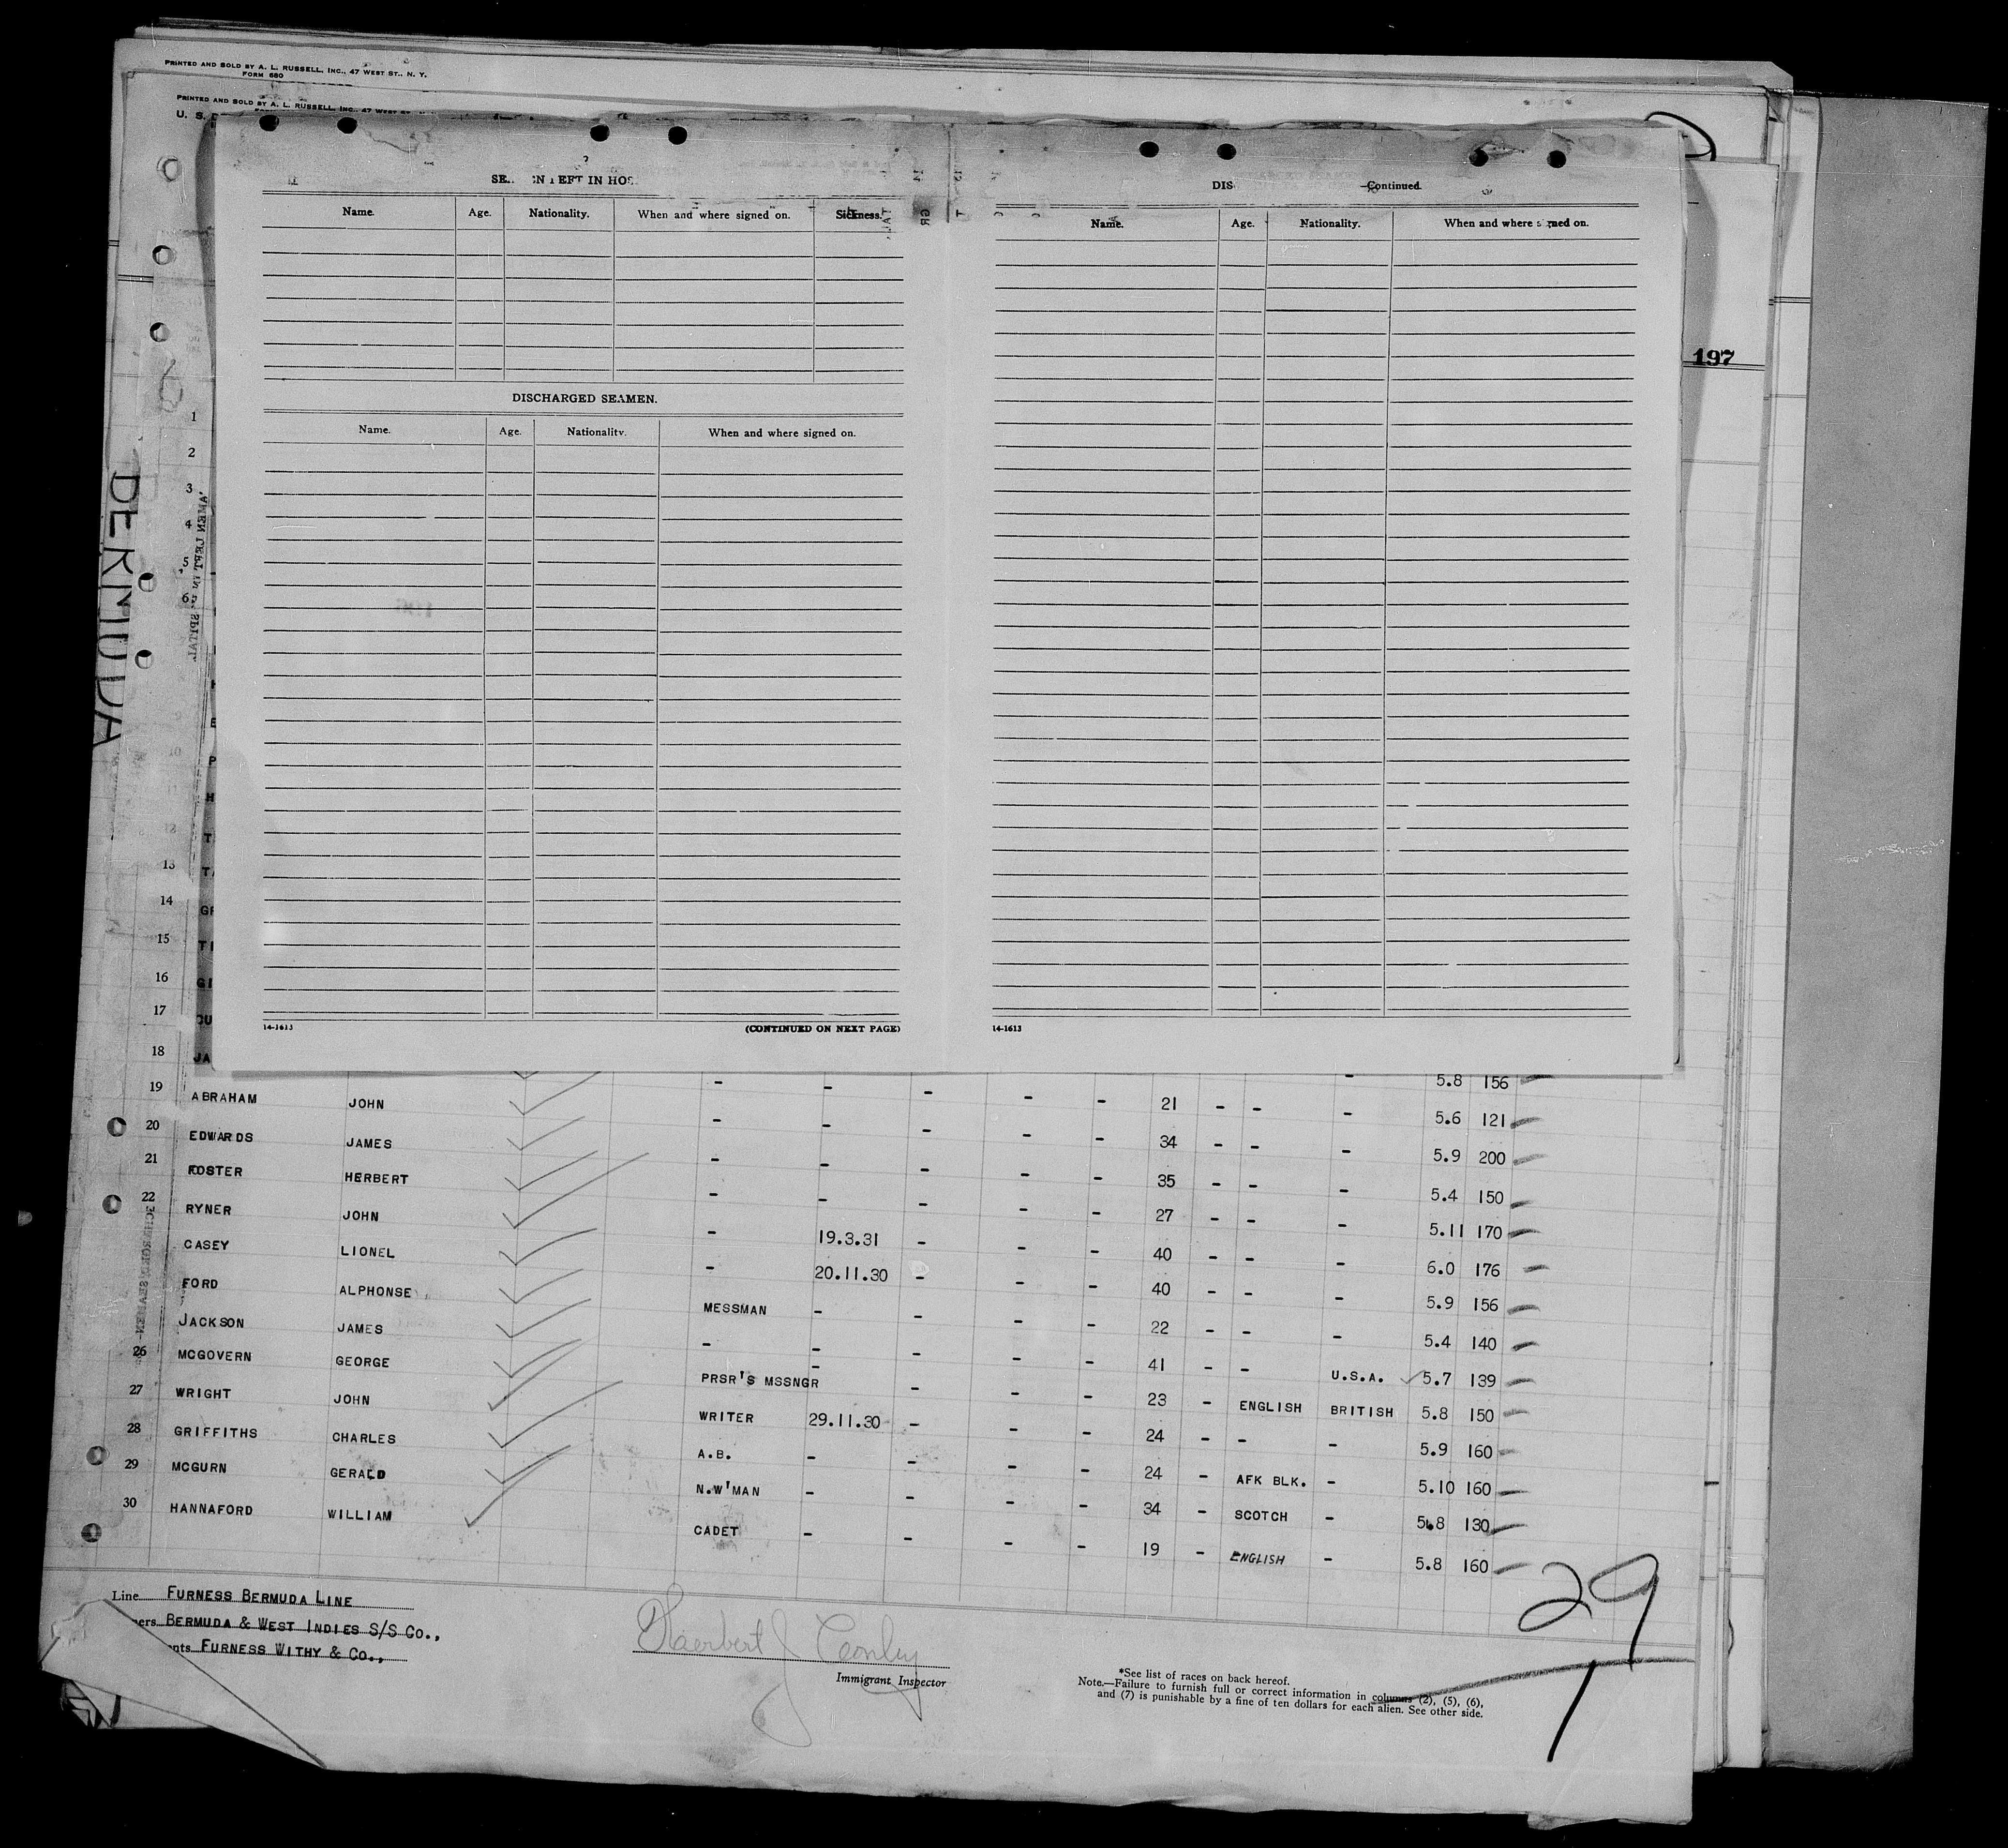 PRINTED AND SOLD BY A. L. RUSSELL, INC., 47 WEST ST., N. Y.
FORM 680
PRINTED AND SOLD BY A. L. RUSSELL, INC., 47 WEST ST.
U. S.
LEFT IN HOS
Name. Age. Nationality. When and where signed on. Sickness.
DISCHARGED SEAMEN.
Name. Age. Nationality. When and where signed on.
14-1613 (CONTINUED ON NEXT PAGE)
DIS —Continued.
Name. Age. Nationality. When and where signed on.
14-1613
197
BERMUDA
1
2
3
4
5
6
10
12
13
14
15
16
17
18
5.8 156
- - - - - 21 - - - 5.6 121
19 ABRAHAM JOHN - - - - - 34 - - - 5.9 200
20 EDWARDS JAMES - - - - - 35 - - - 5.4 150
21 FOSTER HERBERT - - - - - 27 - - - 5.11 170
22 RYNER JOHN - 19.3.31 - - - 40 - - - 6.0 176
CASEY LIONEL - 20.11.30 - - - 40 - - - 5.9 156
FORD ALPHONSE MESSMAN - - - - 22 - - - 5.4 140
JACKSON JAMES - - - - - 41 - - U.S.A. 5.7 139
26 MCGOVERN GEORGE PRSR'S MSSNGR - - - - 23 - ENGLISH BRITISH 5.8 150
27 WRIGHT JOHN WRITER 29.11.30 - - - 24 - - - 5.9 160
28 GRIFFITHS CHARLES A.B. - - - - 24 - AFK BLK. - 5.10 160
29 MCGURN GERALD N.W'MAN - - - - 34 - SCOTCH - 5.8 130
30 HANNAFORD WILLIAM CADET - - - - 19 - ENGLISH - 5.8 160
29
Line FURNESS BERMUDA LINE
BERMUDA & WEST INDIES S/S CO.,
FURNESS WITHY & CO.,
Immigrant Inspector
*See list of races on back hereof.
Note.—Failure to furnish full or correct information in columns (2), (5), (6),
and (7) is punishable by a fine of ten dollars for each alien. See other side.